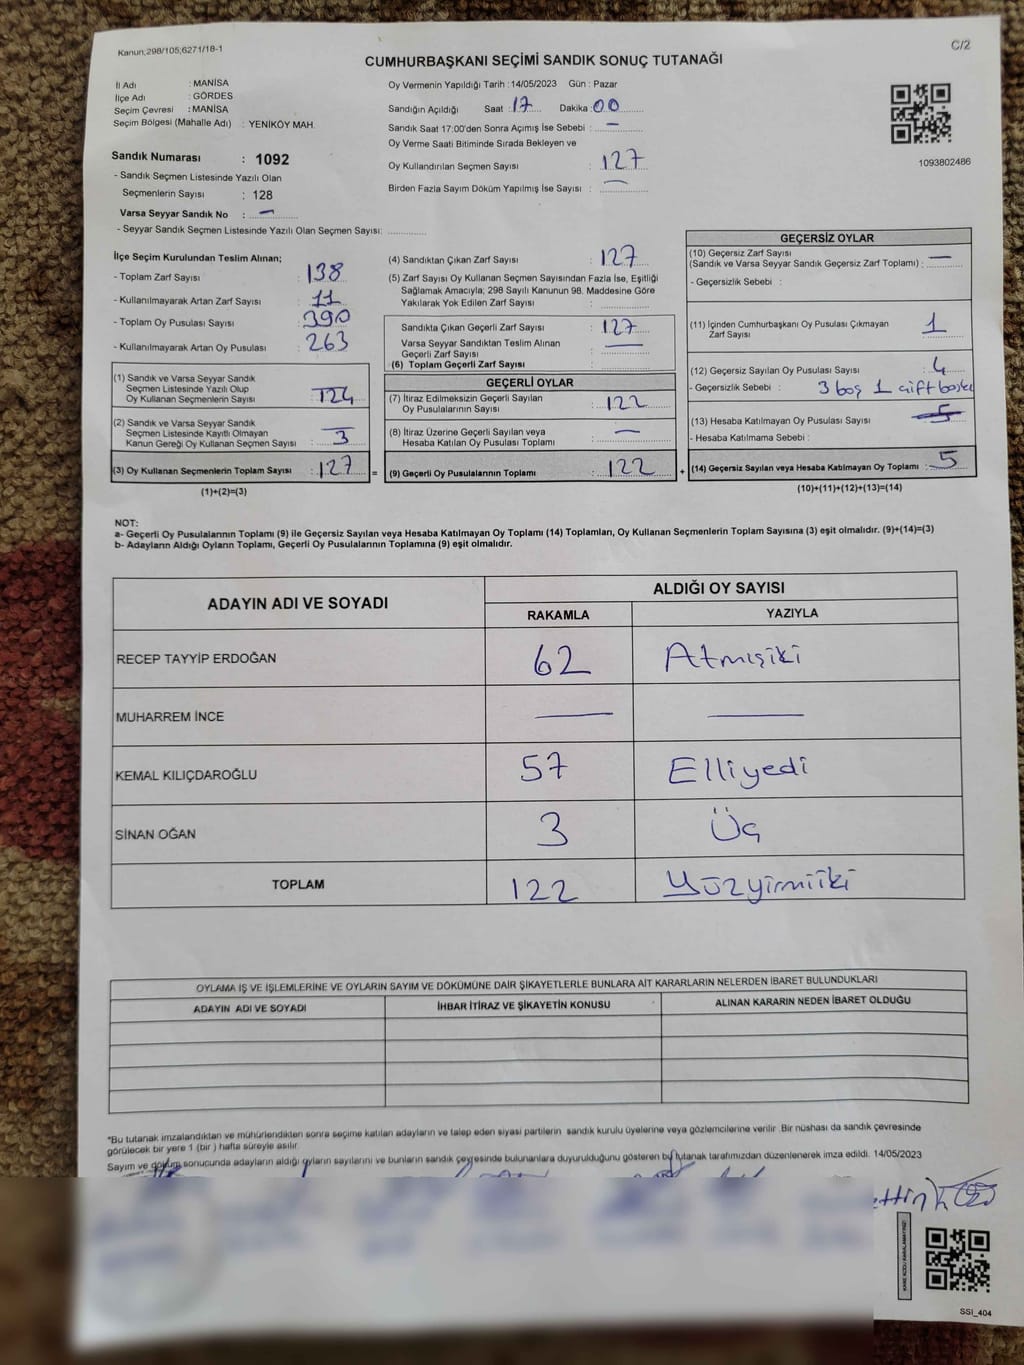 Kanun;298/105;6271/18-1
C/2
CUMHURBAŞKANI SEÇİMİ SANDIK SONUÇ TUTANAĞI
İl Adı : MANİSA
İlçe Adı : GÖRDES
Seçim Çevresi : MANİSA
Seçim Bölgesi (Mahalle Adı) : YENİKÖY MAH.
Oy Vermenin Yapıldığı Tarih : 14/05/2023 Gün : Pazar
Sandığın Açıldığı Saat : 17 Dakika : 00
Sandık Saat 17:00'den Sonra Açımış İse Sebebi : —
Oy Verme Saati Bitiminde Sırada Bekleyen ve
Oy Kullandırılan Seçmen Sayısı : 127
Birden Fazla Sayım Döküm Yapılmış İse Sayısı : —
1093802486
Sandık Numarası : 1092
- Sandık Seçmen Listesinde Yazılı Olan
Seçmenlerin Sayısı : 128
Varsa Seyyar Sandık No : —
- Seyyar Sandık Seçmen Listesinde Yazılı Olan Seçmen Sayısı:
İlçe Seçim Kurulundan Teslim Alınan;
- Toplam Zarf Sayısı : 138
- Kullanılmayarak Artan Zarf Sayısı : 11
- Toplam Oy Pusulası Sayısı : 390
- Kullanılmayarak Artan Oy Pusulası : 263
(1) Sandık ve Varsa Seyyar Sandık
Seçmen Listesinde Yazılı Olup
Oy Kullanan Seçmenlerin Sayısı : 124
(2) Sandık ve Varsa Seyyar Sandık
Seçmen Listesinde Kayıtlı Olmayan
Kanun Gereği Oy Kullanan Seçmen Sayısı : 3
(3) Oy Kullanan Seçmenlerin Toplam Sayısı : 127 =
(1)+(2)=(3)
(4) Sandıktan Çıkan Zarf Sayısı : 127
(5) Zarf Sayısı Oy Kullanan Seçmen Sayısından Fazla İse, Eşitliği
Sağlamak Amacıyla; 298 Sayılı Kanunun 98. Maddesine Göre
Yakılarak Yok Edilen Zarf Sayısı :
Sandıkta Çıkan Geçerli Zarf Sayısı : 127
Varsa Seyyar Sandıktan Teslim Alınan
Geçerli Zarf Sayısı : —
(6) Toplam Geçerli Zarf Sayısı :
GEÇERLİ OYLAR
(7) İtiraz Edilmeksizin Geçerli Sayılan
Oy Pusulalarının Sayısı : 122
(8) İtiraz Üzerine Geçerli Sayılan veya
Hesaba Katılan Oy Pusulası Toplamı : —
(9) Geçerli Oy Pusulalarının Toplamı : 122 +
GEÇERSİZ OYLAR
(10) Geçersiz Zarf Sayısı —
(Sandık ve Varsa Seyyar Sandık Geçersiz Zarf Toplamı) :
- Geçersizlik Sebebi :
(11) İçinden Cumhurbaşkanı Oy Pusulası Çıkmayan
Zarf Sayısı : 1
(12) Geçersiz Sayılan Oy Pusulası Sayısı : 4
- Geçersizlik Sebebi : 3 boş 1 çift baskı
(13) Hesaba Katılmayan Oy Pusulası Sayısı :
- Hesaba Katılmama Sebebi :
(14) Geçersiz Sayılan veya Hesaba Katılmayan Oy Toplamı : 5
(10)+(11)+(12)+(13)=(14)
NOT:
a- Geçerli Oy Pusulalarının Toplamı (9) ile Geçersiz Sayılan veya Hesaba Katılmayan Oy Toplamı (14) Toplamları, Oy Kullanan Seçmenlerin Toplam Sayısına (3) eşit olmalıdır. (9)+(14)=(3)
b- Adayların Aldığı Oyların Toplamı, Geçerli Oy Pusulalarının Toplamına (9) eşit olmalıdır.
ADAYIN ADI VE SOYADI
ALDIĞI OY SAYISI
RAKAMLA YAZIYLA
RECEP TAYYİP ERDOĞAN 62 Atmışiki
MUHARREM İNCE — —
KEMAL KILIÇDAROĞLU 57 Elliyedi
SİNAN OĞAN 3 Üç
TOPLAM 122 Yüzyirmiiki
OYLAMA İŞ VE İŞLEMLERİNE VE OYLARIN SAYIM VE DÖKÜMÜNE DAİR ŞİKAYETLERLE BUNLARA AİT KARARLARIN NELERDEN İBARET BULUNDUKLARI
ADAYIN ADI VE SOYADI İHBAR İTİRAZ VE ŞİKAYETİN KONUSU ALINAN KARARIN NEDEN İBARET OLDUĞU
*Bu tutanak imzalandıktan ve mühürlendikten sonra seçime katılan adayların ve talep eden siyasi partilerin sandık kurulu üyelerine veya gözlemcilerine verilir. Bir nüshası da sandık çevresinde
görülecek bir yere 1 (bir ) hafta süreyle asılır.
Sayım ve döküm sonucunda adayların aldığı oyların sayılarını ve bunların sandık çevresinde bulunanlara duyurulduğunu gösteren bu tutanak tarafımızdan düzenlenerek imza edildi. 14/05/2023
KARE KODU KARALAMAYINIZ!
SSİ_404